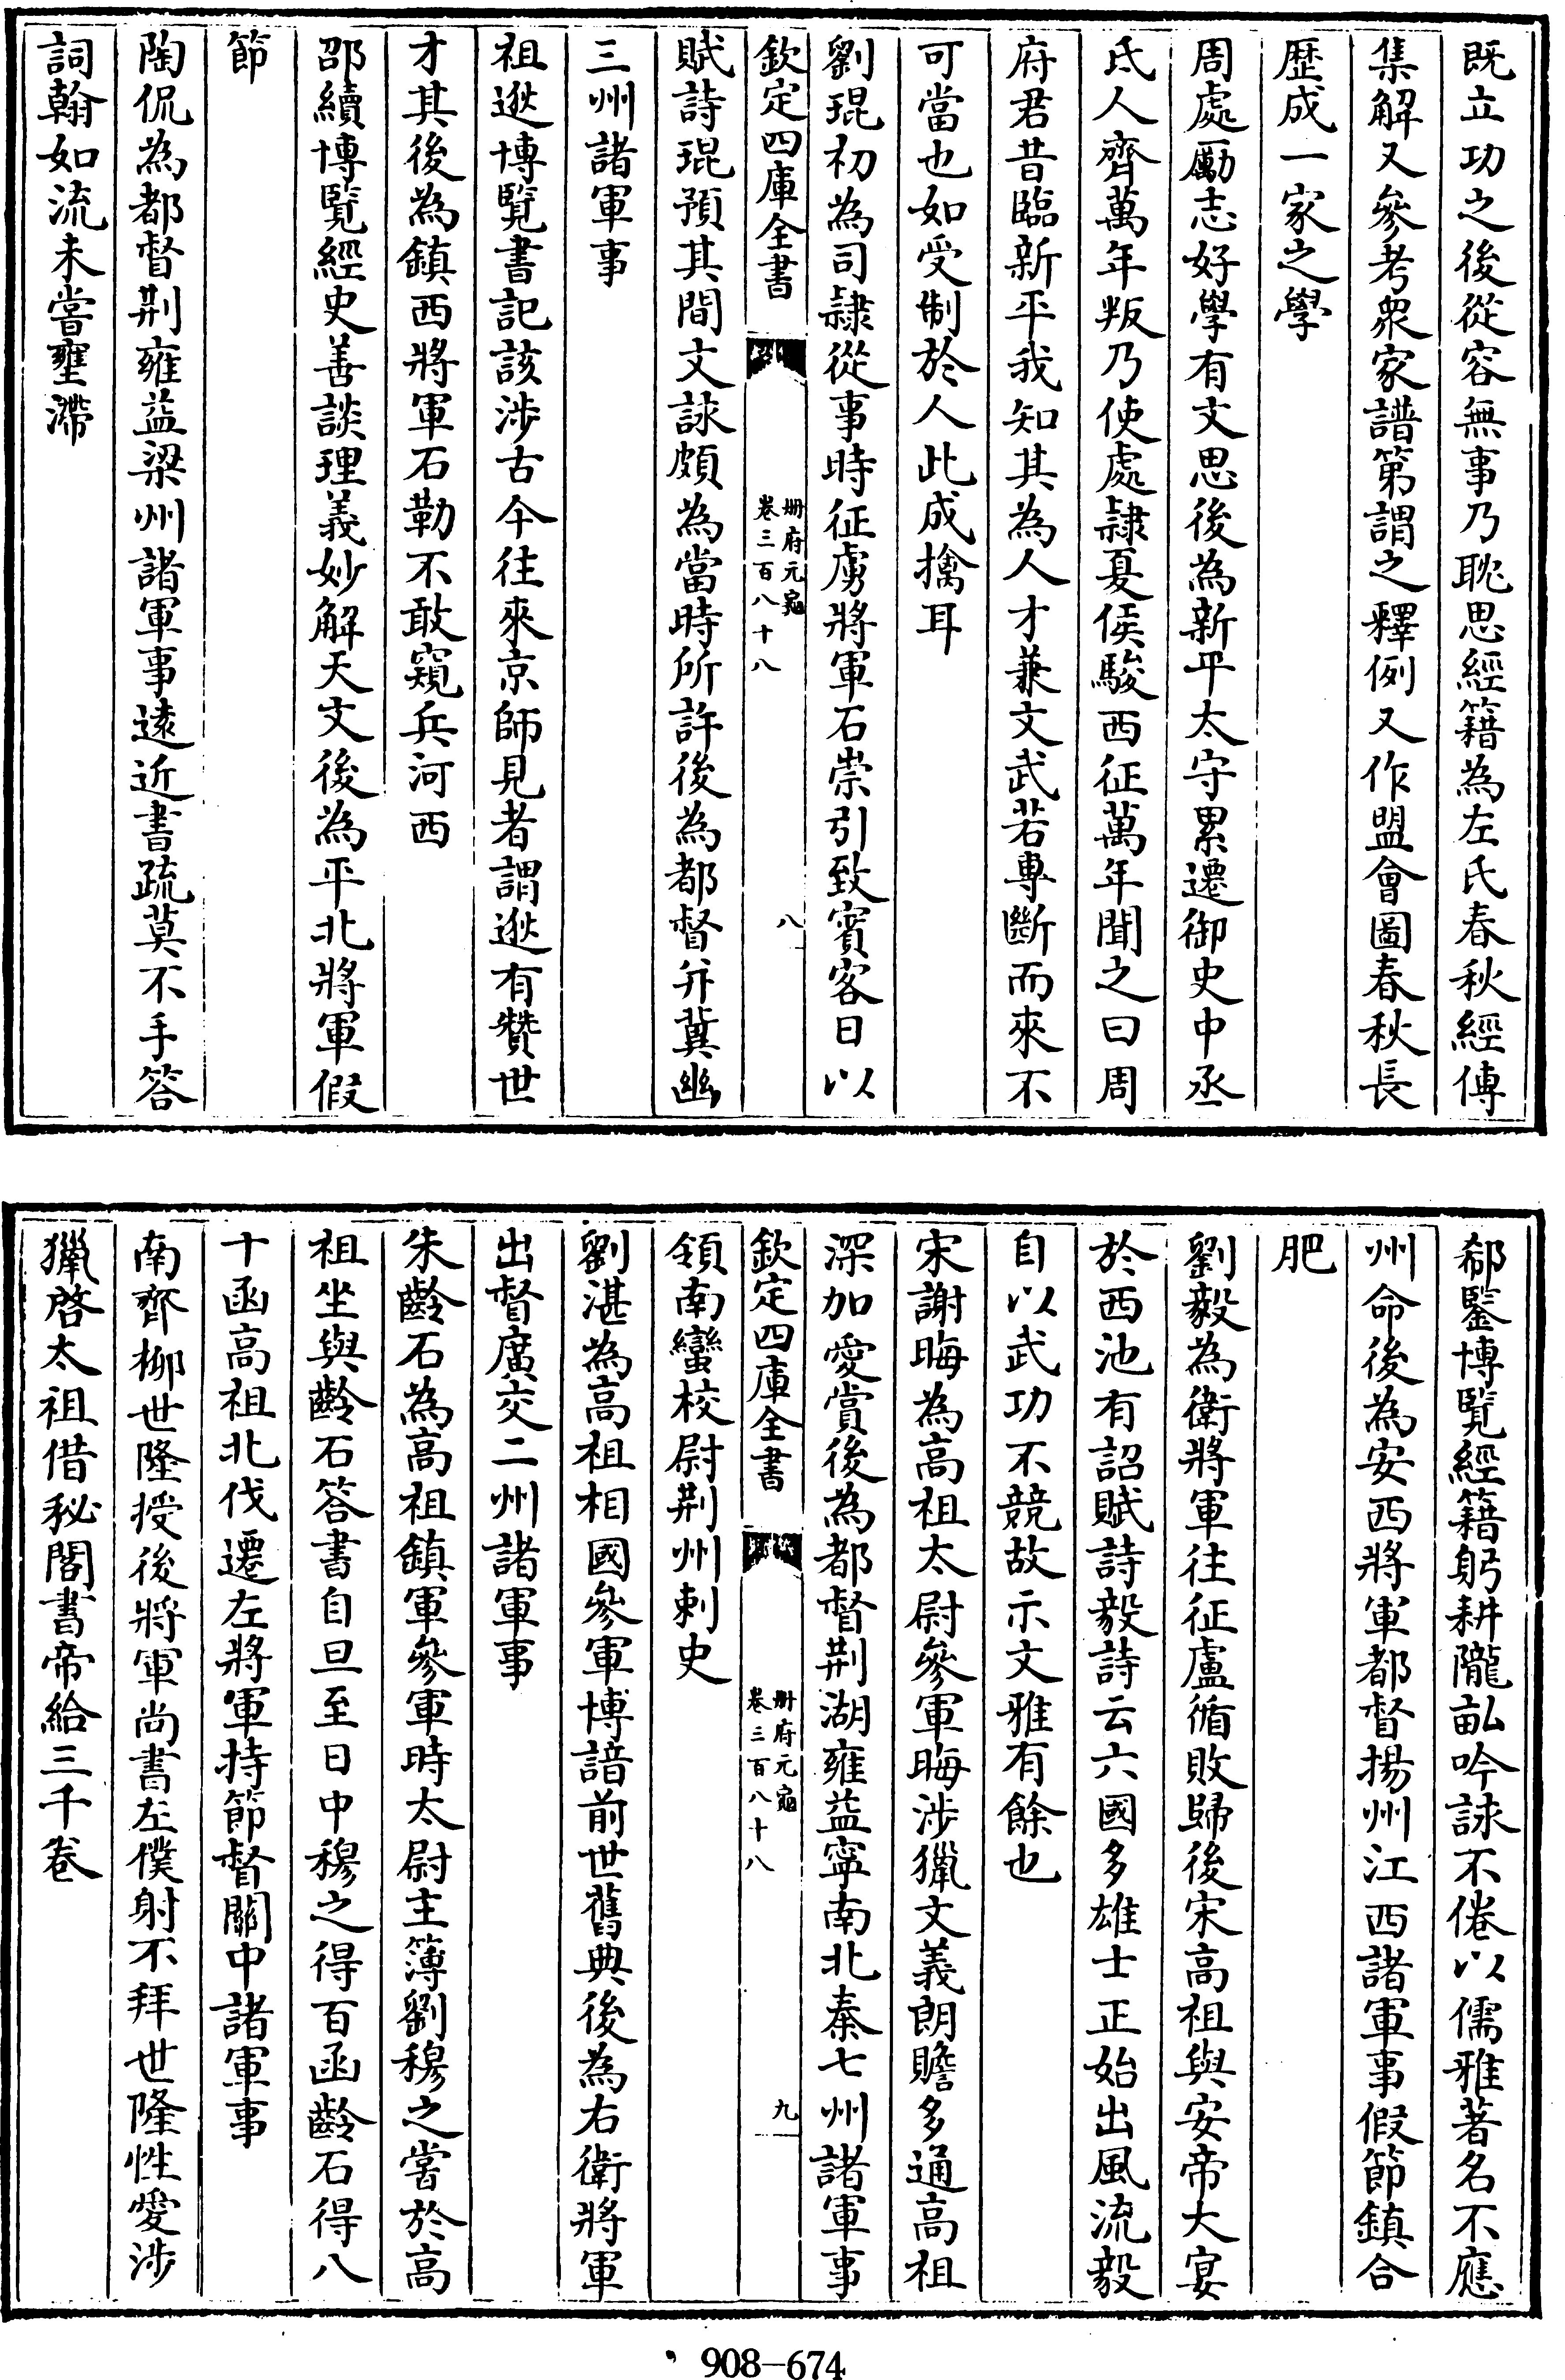 既立功之後從容無事乃耽思經籍為左氏春秋經傳
集解又參考衆家譜第謂之釋例又作盟會圖春秋長
歷成一家之學
周處勵志好學有文思後為新平太守累遷御史中丞
氐人齊萬年叛乃使處隷夏侯駿西征萬年聞之曰周
府君昔臨新平我知其為人才兼文武若專斷而來不
可當也如受制於人此成擒耳
劉琨初為司隷從事時征虜將軍石崇引致賓客日以
欽定四庫全書
冊府元龜
卷三百八十八
八
賦詩琨預其間文詠頗為當時所許後為都督并冀幽
三州諸軍事
祖逖博覽書記該涉古今往來京師見者謂逖有贊世
才其後為鎮西將軍石勒不敢窺兵河西
邵續博覽經史善談理義妙解天文後為平北將軍假
節
陶侃為都督荆雍益梁州諸軍事逺近書疏莫不手答
詞翰如流未嘗壅滯
郗鑒博覽經籍躬耕隴畝吟詠不倦以儒雅著名不應
州命後為安西將軍都督揚州江西諸軍事假節鎮合
肥
劉毅為衛將軍往征盧循敗歸後宋高祖與安帝大宴
於西池有詔賦詩毅詩云六國多雄士正始出風流毅
自以武功不競故示文雅有餘也
宋謝晦為高祖太尉參軍晦涉獵文義朗贍多通高祖
深加愛賞後為都督荆湖雍益寧南北秦七州諸軍事
欽定四庫全書
冊府元龜
卷三百八十八
九
領南蠻校尉荆州刺史
劉湛為高祖相國參軍博諳前世舊典後為右衛將軍
出督廣交二州諸軍事
朱齡石為高祖鎮軍參軍時太尉主簿劉穆之嘗於高
祖坐與齡石答書自旦至日中穆之得百函齡石得八
十函高祖北伐遷左將軍持節督關中諸軍事
南齊栁世隆授後將軍尚書左僕射不拜世隆性愛涉
獵啓太祖借秘閣書帝給三千卷
908-674